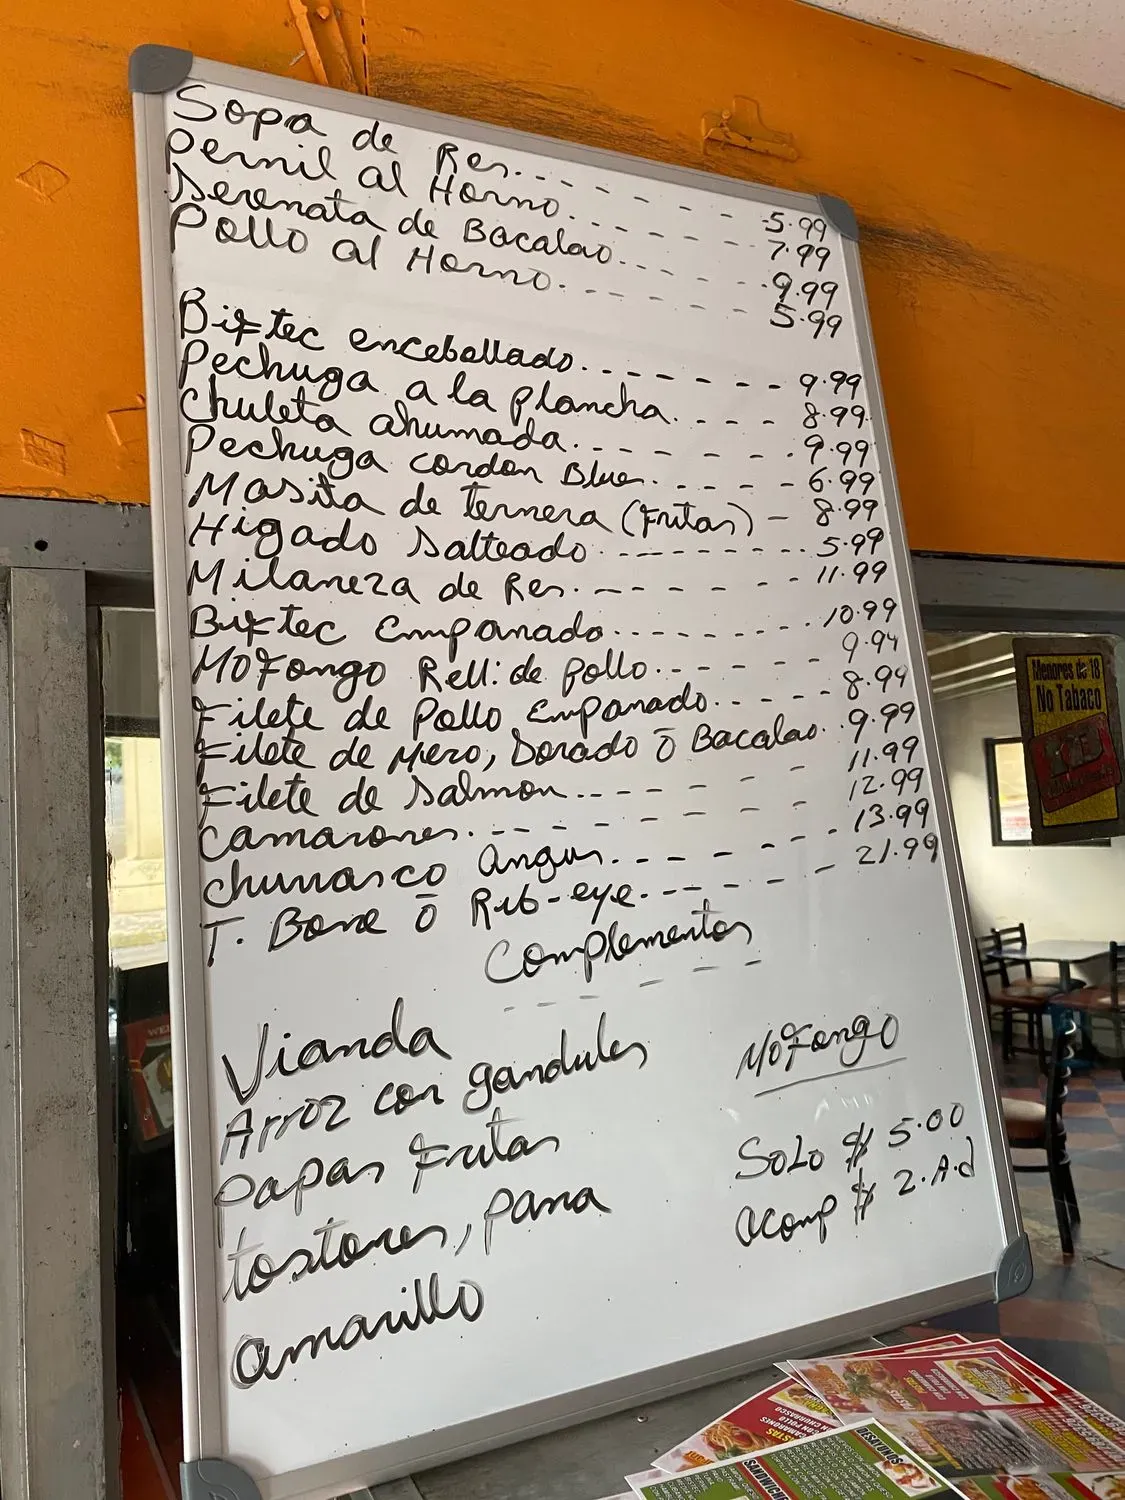 Sopa de Res.... - - - - - 5.99
Pernil al Horno. - - - - - - 7.99
Serenata de Bacalao. - - - - - 9.99
Pollo al Horno. - - - - - - 5.99
Biftec encebollado. - - - - - - - 9.99
Pechuga a la plancha. - - - - 8.99
Chuleta ahumada. - - - - - - - 9.99
Pechuga cordon Blue. - - - - - 6.99
Masita de ternera (Fritas) - 8.99
Higado Salteado - - - - - - - - 5.99
Milaneza de Res. - - - - - - - 11.99
Biftec Empanado. - - - - - - - - 10.99
Mofongo Rell: de pollo. - - - - - - 9.94
Filete de Pollo Empanado. - - - - 8.99
Filete de Mero, Dorado ō Bacalao. 9.99
Filete de Salmon. - - - - - - 11.99
Camarones. - - - - - - - - 12.99
Churrasco Angus. - - - - - - - 13.99
T. Bone ō Rib-eye. - - - - - - 21.99
Complementos
Vianda
Arroz con gandules
papas Fritas
tostones, pana
amarillo
Mofongo
Solo $ 5.00
acomp $ 2.A.d
Menores de 18
No Tabaco